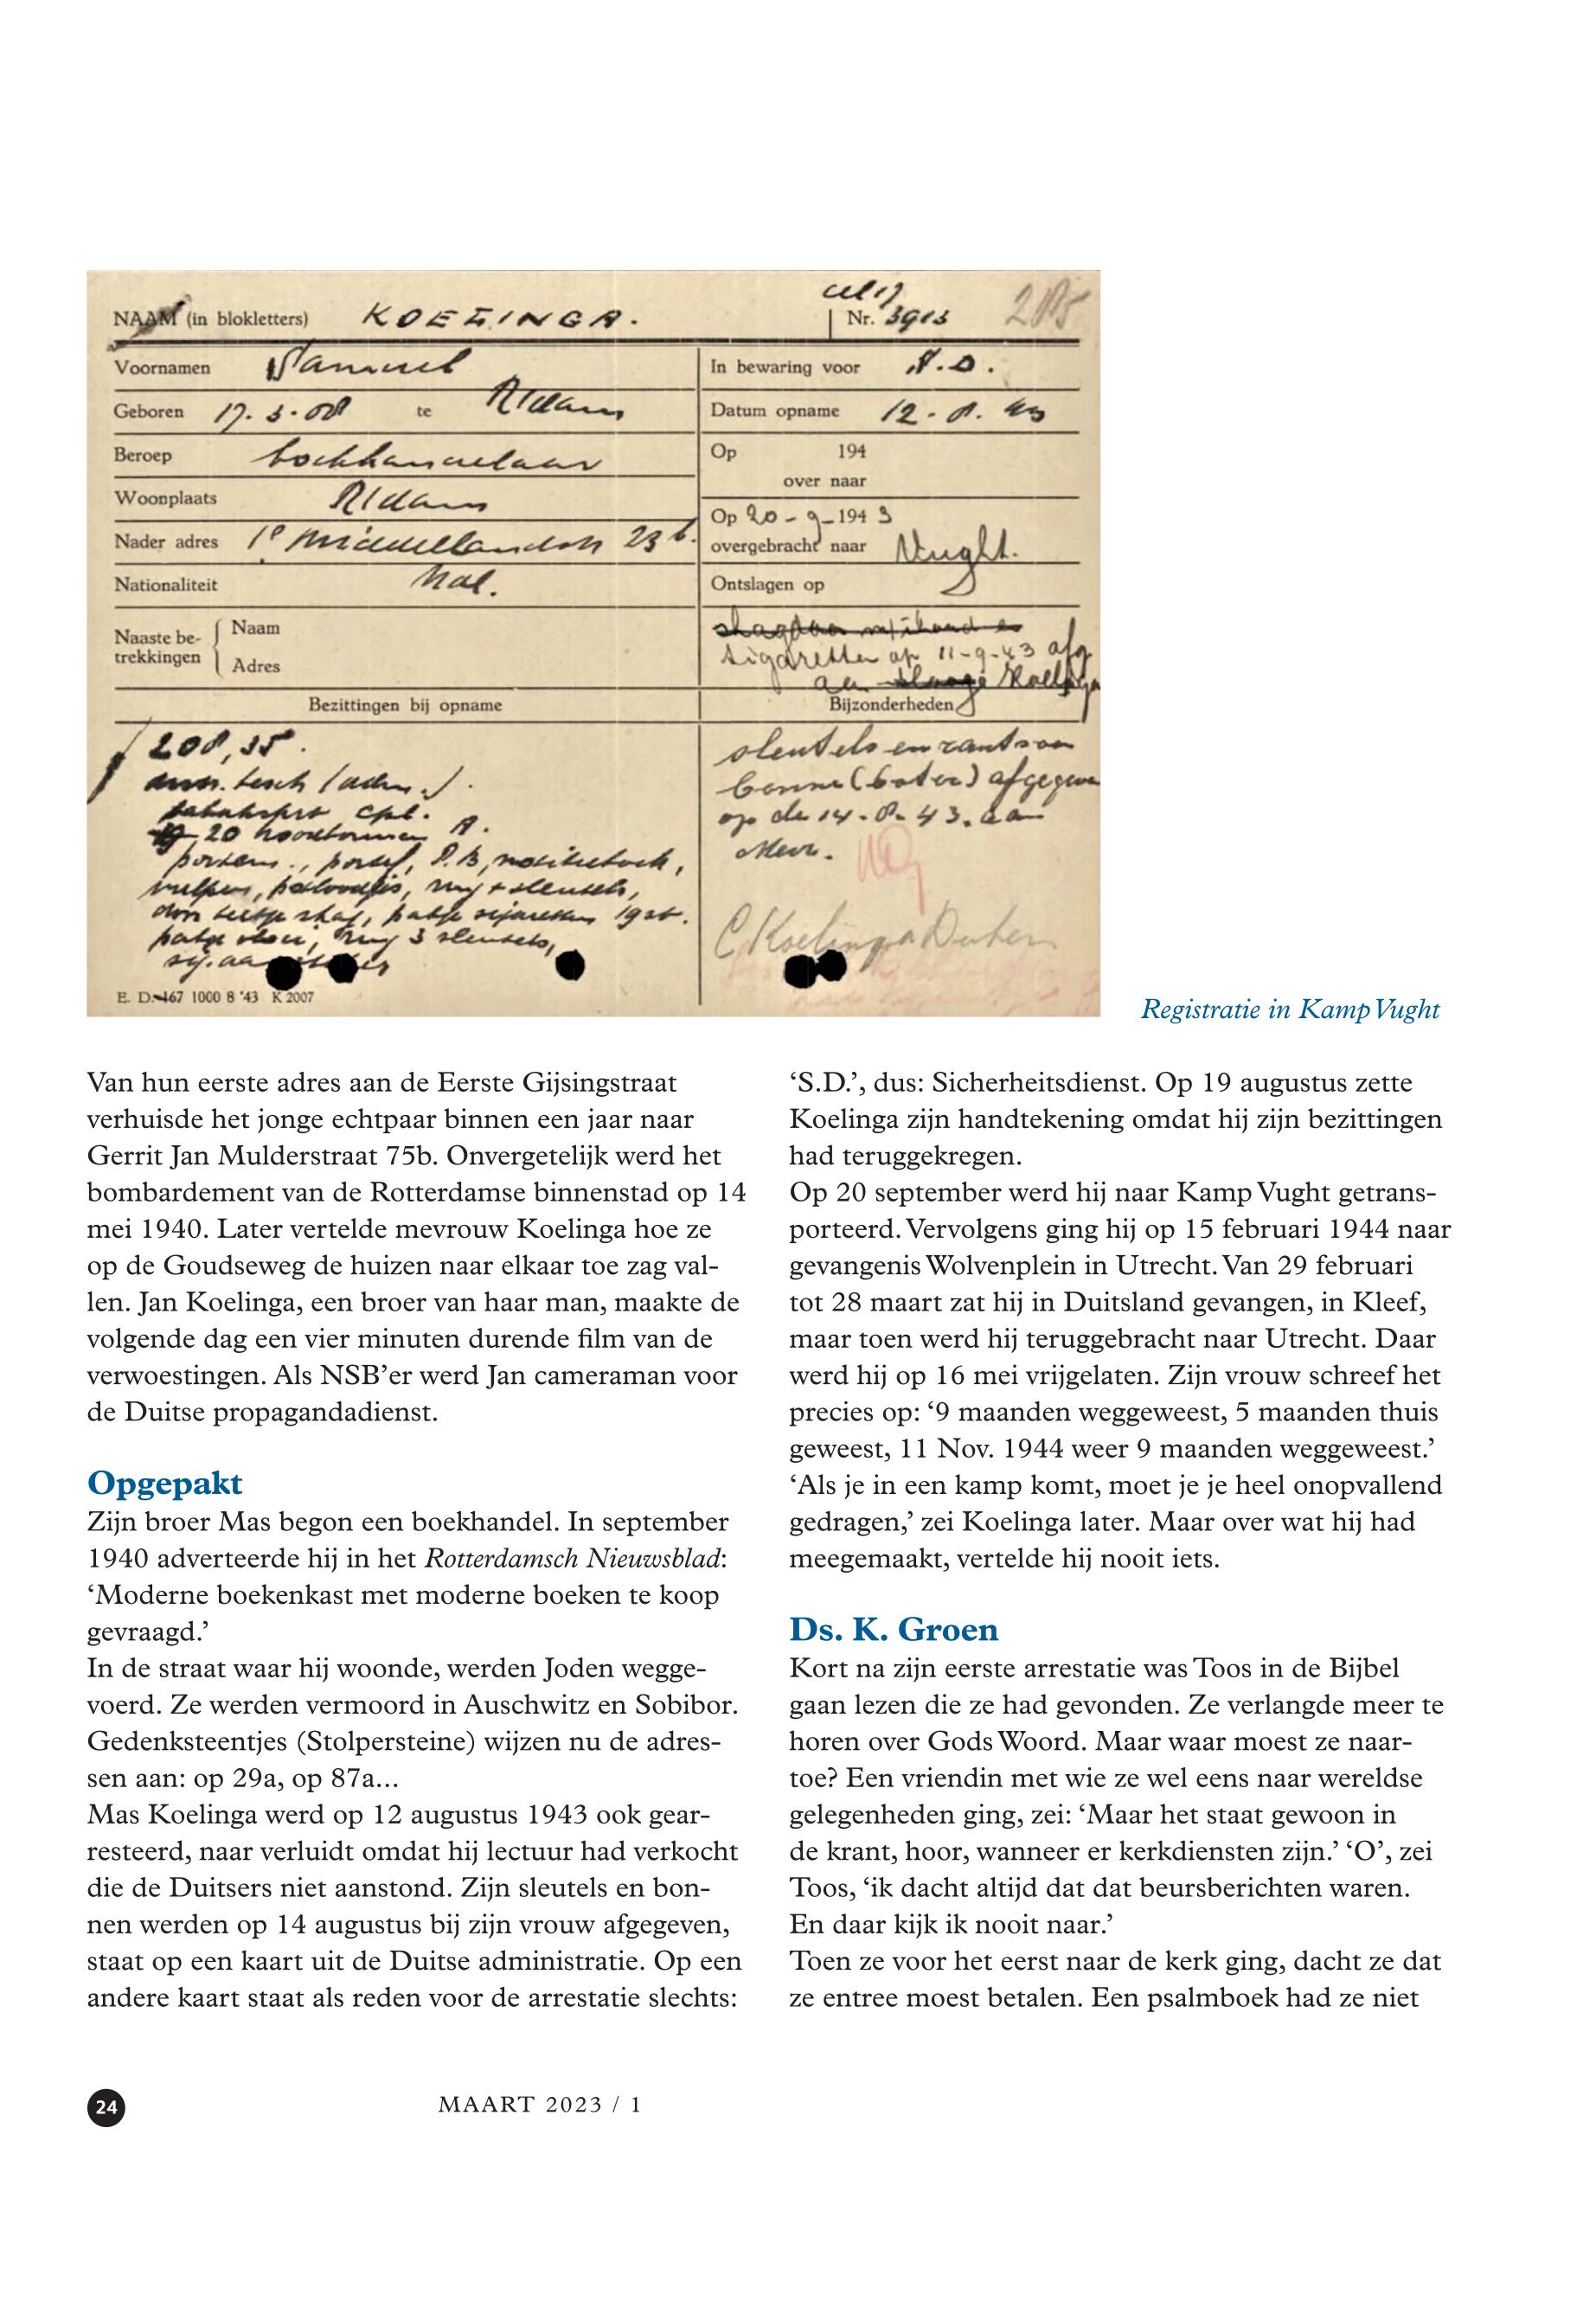 NAAM (in blokletters) KOELINGA. Nr. 3913
Voornamen Samuel
Geboren 17.3.08 te R'dam
Beroep boekhandelaar
Woonplaats R'dam
Nader adres 1e Middellandstr 23 b.
Nationaliteit Ned.
Naaste be-
trekkingen
Naam
Adres
In bewaring voor S.D.
Datum opname 12-8-43
Op 194
over naar
Op 20-9-1943
overgebracht naar Vught.
Ontslagen op
sigaretten op 11-9-43 afg
aan Koelinga
Bezittingen bij opname
208,35.
Bijzonderheden
sleutels en rantsoen
bonnen (boter) afgegeven
op de 14-8-43. aan
Mevr.
C Koelinga
E. D. 467 1000 8 '43 K 2007
Registratie in Kamp Vught
Van hun eerste adres aan de Eerste Gijsingstraat
verhuisde het jonge echtpaar binnen een jaar naar
Gerrit Jan Mulderstraat 75b. Onvergetelijk werd het
bombardement van de Rotterdamse binnenstad op 14
mei 1940. Later vertelde mevrouw Koelinga hoe ze
op de Goudseweg de huizen naar elkaar toe zag val-
len. Jan Koelinga, een broer van haar man, maakte de
volgende dag een vier minuten durende film van de
verwoestingen. Als NSB'er werd Jan cameraman voor
de Duitse propagandadienst.
Opgepakt
Zijn broer Mas begon een boekhandel. In september
1940 adverteerde hij in het Rotterdamsch Nieuwsblad:
‘Moderne boekenkast met moderne boeken te koop
gevraagd.’
In de straat waar hij woonde, werden Joden wegge-
voerd. Ze werden vermoord in Auschwitz en Sobibor.
Gedenksteentjes (Stolpersteine) wijzen nu de adres-
sen aan: op 29a, op 87a...
Mas Koelinga werd op 12 augustus 1943 ook gear-
resteerd, naar verluidt omdat hij lectuur had verkocht
die de Duitsers niet aanstond. Zijn sleutels en bon-
nen werden op 14 augustus bij zijn vrouw afgegeven,
staat op een kaart uit de Duitse administratie. Op een
andere kaart staat als reden voor de arrestatie slechts:
‘S.D.’, dus: Sicherheitsdienst. Op 19 augustus zette
Koelinga zijn handtekening omdat hij zijn bezittingen
had teruggekregen.
Op 20 september werd hij naar Kamp Vught getrans-
porteerd. Vervolgens ging hij op 15 februari 1944 naar
gevangenis Wolvenplein in Utrecht. Van 29 februari
tot 28 maart zat hij in Duitsland gevangen, in Kleef,
maar toen werd hij teruggebracht naar Utrecht. Daar
werd hij op 16 mei vrijgelaten. Zijn vrouw schreef het
precies op: ‘9 maanden weggeweest, 5 maanden thuis
geweest, 11 Nov. 1944 weer 9 maanden weggeweest.’
‘Als je in een kamp komt, moet je je heel onopvallend
gedragen,’ zei Koelinga later. Maar over wat hij had
meegemaakt, vertelde hij nooit iets.
Ds. K. Groen
Kort na zijn eerste arrestatie was Toos in de Bijbel
gaan lezen die ze had gevonden. Ze verlangde meer te
horen over Gods Woord. Maar waar moest ze naar-
toe? Een vriendin met wie ze wel eens naar wereldse
gelegenheden ging, zei: ‘Maar het staat gewoon in
de krant, hoor, wanneer er kerkdiensten zijn.’ ‘O’, zei
Toos, ‘ik dacht altijd dat dat beursberichten waren.
En daar kijk ik nooit naar.’
Toen ze voor het eerst naar de kerk ging, dacht ze dat
ze entree moest betalen. Een psalmboek had ze niet
24
MAART 2023 / 1